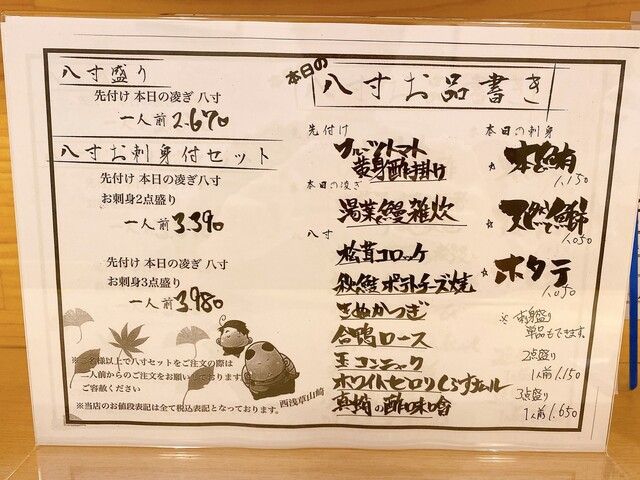 八寸盛り
先付け 本日の凌ぎ 八寸
一人前 2.670
八寸お刺身付セット
先付け 本日の凌ぎ 八寸
お刺身2点盛り
一人前 3.390
先付け 本日の凌ぎ 八寸
お刺身3点盛り
一人前 3.980
※二名様以上で八寸セットをご注文の際は
二人前からのご注文をお願いしております。
ご容赦ください
※当店のお値段表記は全て税込表記となっております。
西浅草山崎
本日の
八寸お品書き
先付け
フルーツトマト
黄身酢掛け
本日の凌ぎ
湯葉と鰻雑炊
八寸
松茸コロッケ
秋鮭ポテトチーズ焼
きぬかつぎ
合鴨ロース
玉コンニャク
ホワイトセロリ
真蛸の酢味噌
本日の刺身
本鮪
1,150
1,050
ホタテ
1,050
※ 刺身盛り
単品もできます。
2点盛り
1人前 1.150
3点盛り
1人前 1.650